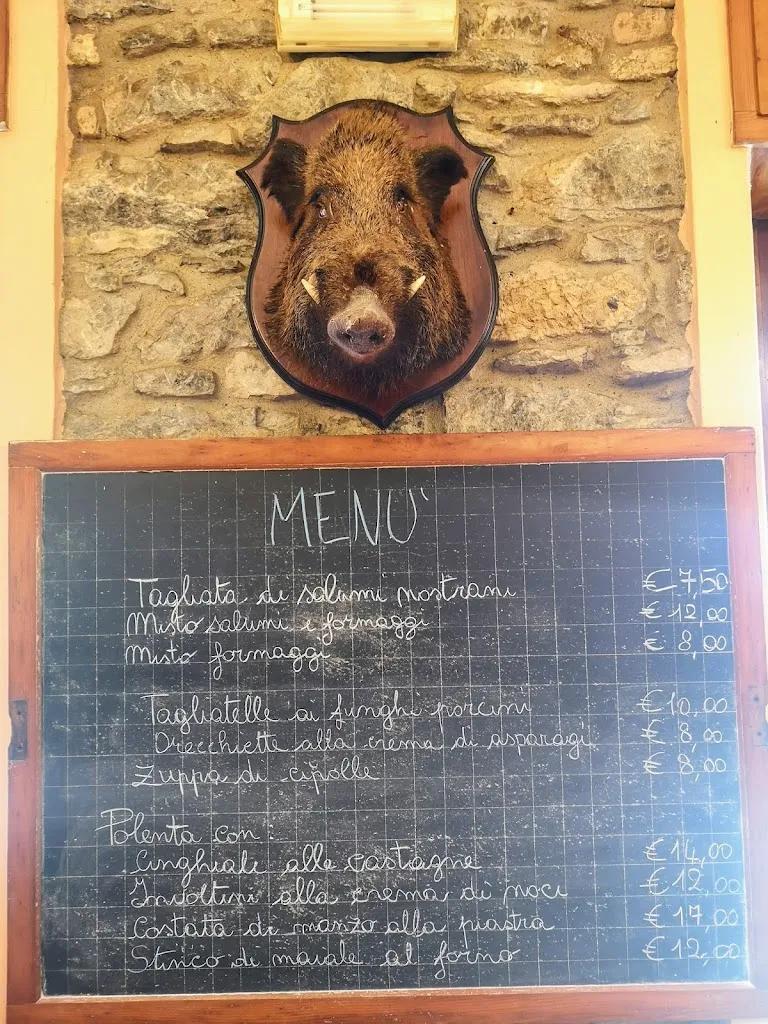 MENU'
Tagliata di salumi nostrani € 7,50
Misto salumi e formaggi € 12,00
Misto formaggi € 8,00
Tagliatelle ai funghi porcini € 10,00
Orecchiette alla crema di asparagi € 8,00
Zuppa di cipolle € 8,00
Polenta con:
Cinghiale alle castagne € 14,00
Involtini alla crema di noci € 12,00
Costata di manzo alla piastra € 17,00
Stinco di maiale al forno € 12,00